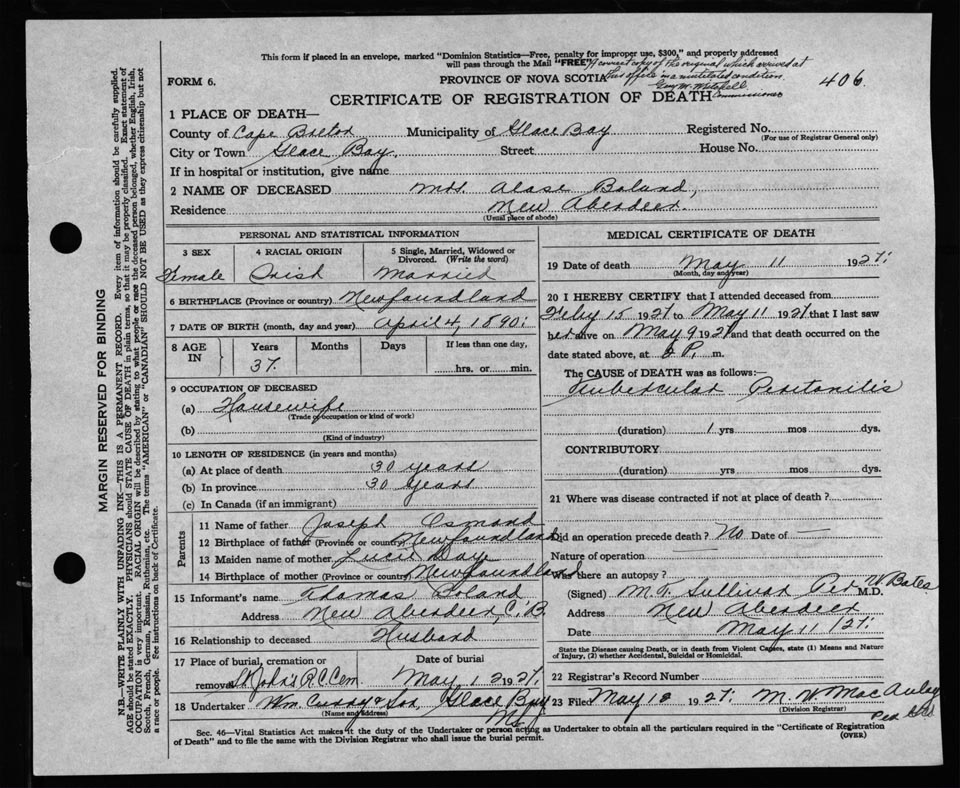 This form if placed in an envelope, marked "Dominion Statistics—Free, penalty for improper use, $300," and properly addressed
will pass through the Mail "FREE"
A correct copy of the original which arrived at
this office in a mutilated condition
Guy M. Mitchell
Commissioner
406
FORM 6.
PROVINCE OF NOVA SCOTIA
CERTIFICATE OF REGISTRATION OF DEATH
1 PLACE OF DEATH—
County of Cape Breton Municipality of Glace Bay Registered No.
(For use of Registrar General only)
City or Town Glace Bay. Street House No.
If in hospital or institution, give name
2 NAME OF DECEASED Mrs. Boland,
Residence New Aberdeen.
(Usual place of abode)
PERSONAL AND STATISTICAL INFORMATION
3 SEX 4 RACIAL ORIGIN 5 Single, Married, Widowed or
Divorced. (Write the word)
Female Irish Married
6 BIRTHPLACE (Province or country) Newfoundland
7 DATE OF BIRTH (month, day and year) April 4, 1890.
8 AGE IN Years Months Days If less than one day,
37. hrs. or min.
9 OCCUPATION OF DECEASED
(a) Housewife
(Trade occupation or kind of work)
(b)
(Kind of industry)
10 LENGTH OF RESIDENCE (in years and months)
(a) At place of death 30 years
(b) In province 30 years
(c) In Canada (if an immigrant)
Parents
11 Name of father Joseph Osmond
12 Birthplace of father (Province or country) Newfoundland
13 Maiden name of mother Lucie Day
14 Birthplace of mother (Province or country) Newfoundland
15 Informant's name Thomas Boland
Address New Aberdeen, C.B
16 Relationship to deceased Husband
17 Place of burial, cremation or Date of burial
removal St John's R.C. Cem. May 12 1927.
18 Undertaker Wm. Curry & Son Glace Bay
(Name and address) N.S.
MEDICAL CERTIFICATE OF DEATH
19 Date of death May 11 1927.
(Month, day and year)
20 I HEREBY CERTIFY that I attended deceased from
Feby 15 1927 to May 11 1927 that I last saw
her alive on May 9 1927 and that death occurred on the
date stated above, at P. m.
The CAUSE of DEATH was as follows:—
Tubercular Peritonitis
(duration) 1 yrs mos dys.
CONTRIBUTORY
(duration) yrs mos dys.
21 Where was disease contracted if not at place of death?
Did an operation precede death? No Date of —
Nature of operation —
Was there an autopsy?
(Signed) M. T. Sullivan Per W. Bates M.D.
Address New Aberdeen
Date May 11 1927.
State the Disease causing Death, or in death from Violent Causes, state (1) Means and Nature
of Injury, (2) whether Accidental, Suicidal or Homicidal.
22 Registrar's Record Number
23 Filed May 12 1927. M. W MacAuley
(Division Registrar)
Per
Sec. 46—Vital Statistics Act makes it the duty of the Undertaker or person acting as Undertaker to obtain all the particulars required in the "Certificate of Registration
of Death" and to file the same with the Division Registrar who shall issue the burial permit.
(OVER)
MARGIN RESERVED FOR BINDING
N.B.—WRITE PLAINLY WITH UNFADING INK—THIS IS A PERMANENT RECORD. Every item of information should be carefully supplied.
AGE should be stated EXACTLY. PHYSICIANS should STATE CAUSE OF DEATH in plain terms, so that it may be properly classified. Exact statement of
OCCUPATION is very important. RACIAL ORIGIN will be described by stating to what people or race the deceased person belonged, whether English, Irish,
Scotch, French, German, Russian, Ruthenian, etc. The terms "AMERICAN" or "CANADIAN" SHOULD NOT BE USED as they express citizenship but not
a race or people. See instructions on back of Certificate.